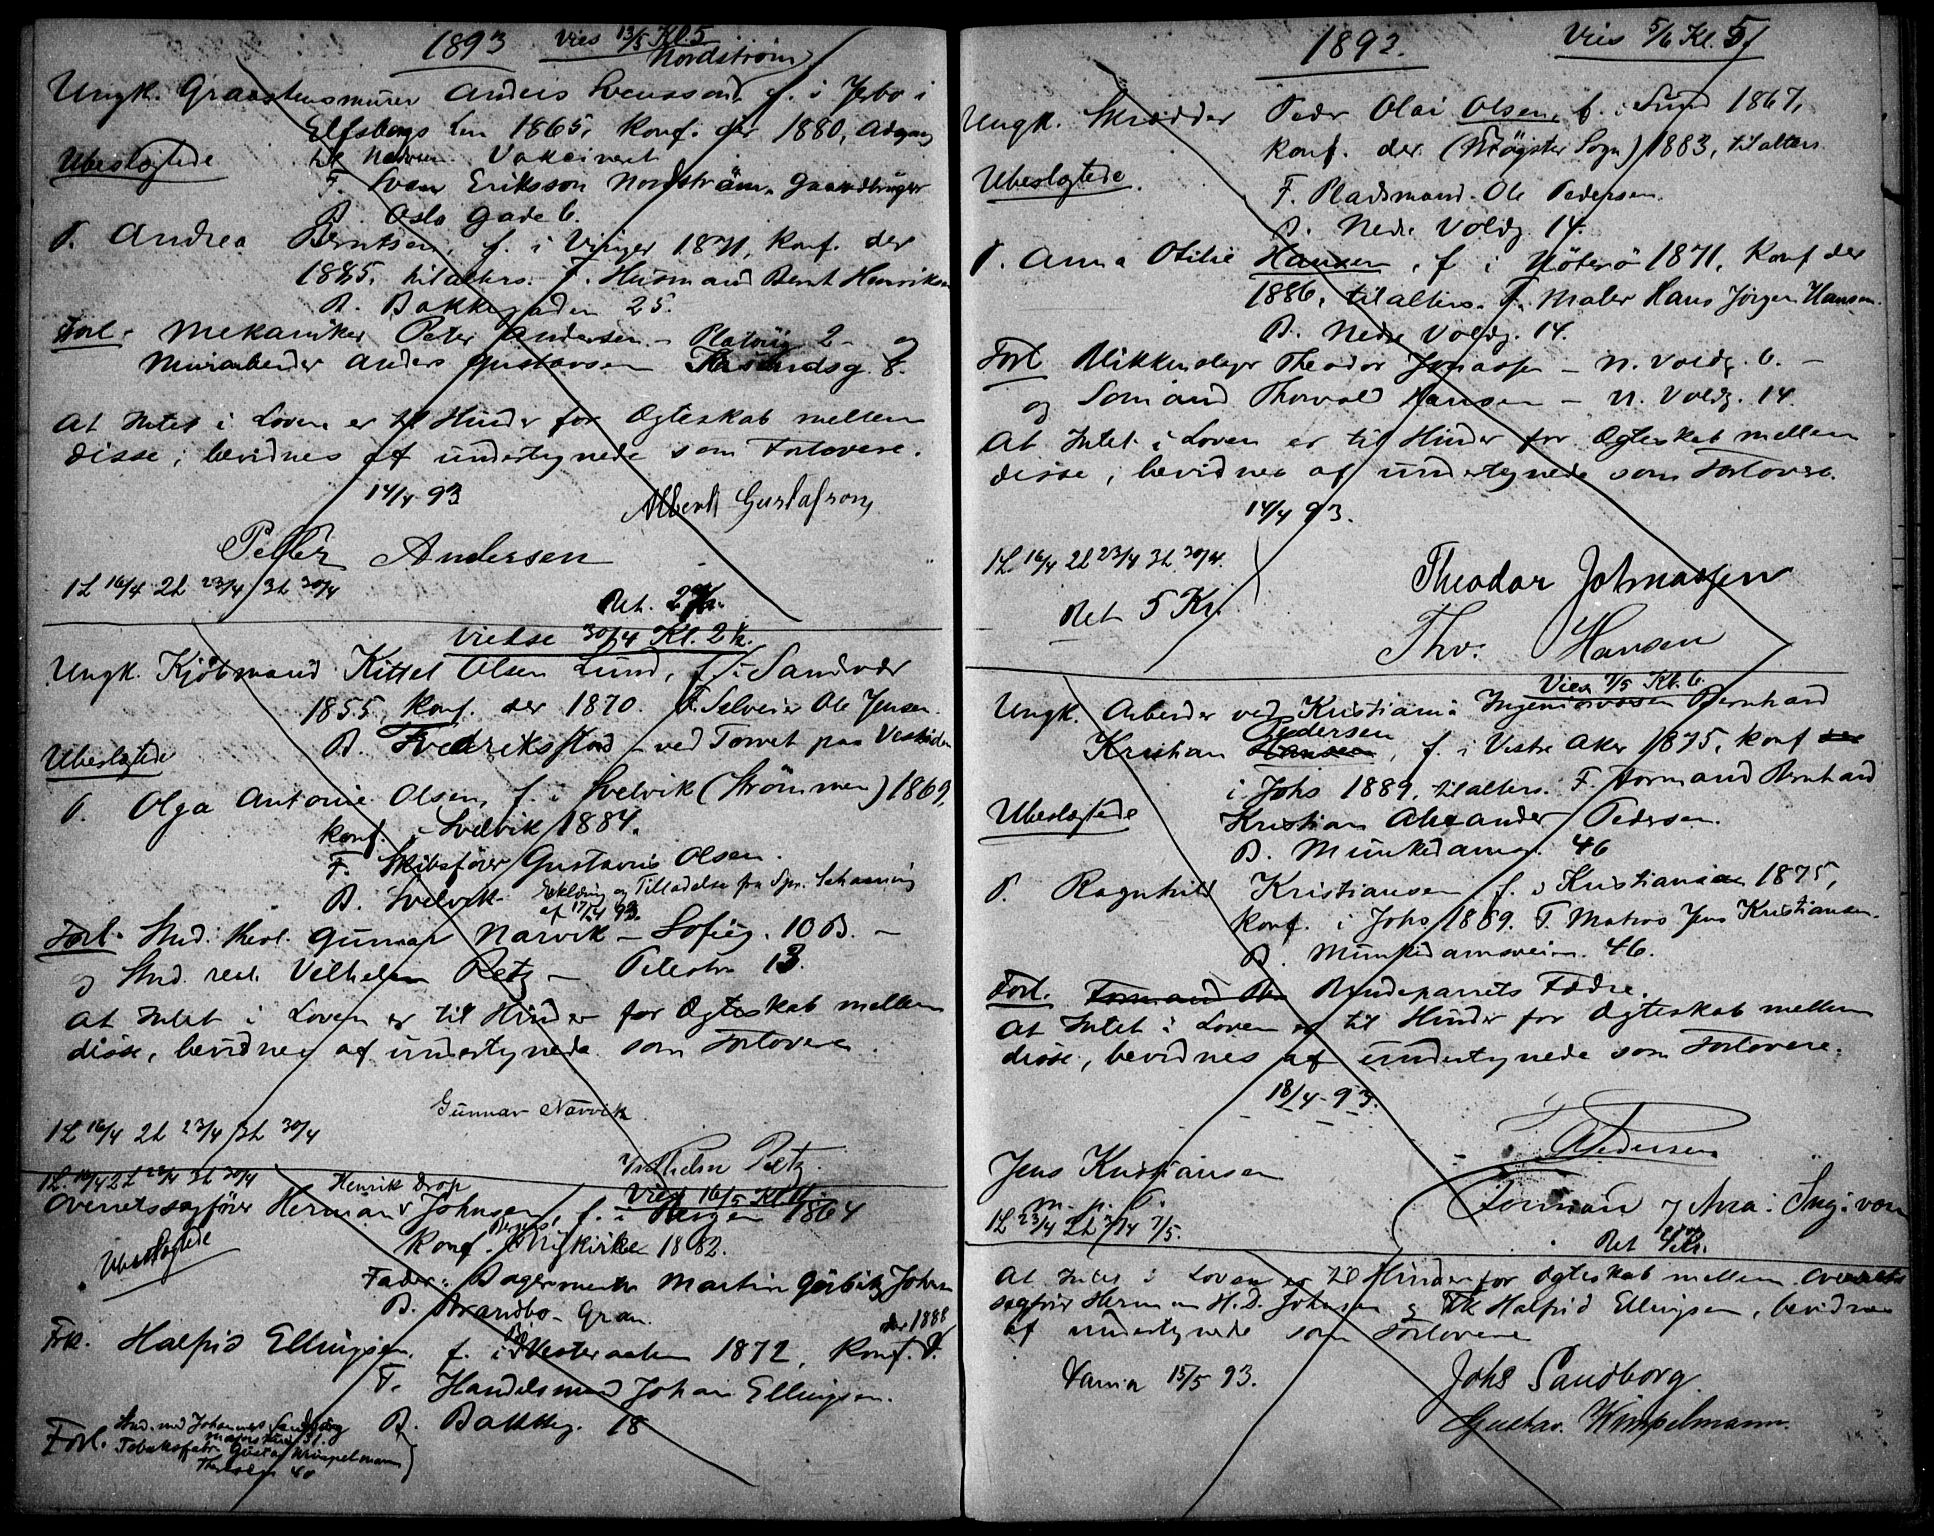 1893 Vies 13/5 Kl. 5
Nordström
Ungk. Graastensmurer Anders Svensson f. i Jerbo i
Elfsborgs Len 1865, konf. der 1880, Adgang
til Nadveren. Vakcineret
Ubeslægtede
F. Sven Eriksson Nordström, Gaardbruger
B. Oslo gade 6.
P. Andrea Berntsen, f. i Vinger 1871, konf. der
1885. til alters. F. Husmand Bernt Henriksen
B. Bakkegaden 25.
Forl. Mekaniker Peter Andersen - Platoug. 2 - og
Murarbeider Anders Gustavsen 8.
At Intet i Loven er til Hinder for Ægteskab mellem
disse, bevidnes af undertegnede som Forlovere.
14/4 93 Albert Gustafson
Petter Andersen
1L 16/4 2L 23/4 3L 30/4
Bet. 2 Kr.
Viedse 30/4 Kl. 2 1/2.
Ungk. Kjöbmand Kittel Olsen Lund, f. i Sandsvær
1855, konf. der 1870. F. Selveier Ole Jensen.
B. Fredriksstad - ved Torvet paa Vestsiden
Ubeslægtede
P. Olga Antonie Olsen, f. i Svelvik (Strömmen) 1869,
konf. i Svelvik 1884.
F. Skibsförer Gustavus Olsen.
B. Svelvik. Erklæring og Tilladelse fra Spr. Schanning
af 17/4 93.
Forl. Stud. theol. Gunnar Narvik - Sofieg. 10 B. -
og Stud. real. Vilhelm Petz - Pilestr. 13.
At Intet i Loven er til Hinder for Ægteskab mellem
disse, bevidnes af undertegnede som Forlovere.
Gunnar Narvik
1L 16/4 2L 23/4 3L 30/4
Vilhelm Petz.
1L. 16/4 2L 23/4 3L 30/4 Henrik Drop Vies 16/5 Kl.
Overretssagförer Herman Johnsen, f. i Bergen 1864
konf. i Bergens Nykirke 1882.
Ubeslægtede
Fader: Bagermester Martin Görbitz Johnsen
B. Brandbo - Gran.
der 1888
Frk. Halfrid Ellingsen. f. i Vesteraalen 1872, konf.
F. Handelsmand Johan Ellingsen.
B. Bakkeg. 18
Forl. Stud. med Johannes Sandborg
31.
Tobaksfabr. Gustav Wimpelmann
40
1893. Vies 5/6 Kl. 5.
Ungk. Skrædder Peder Olai Olsen, f. i Sund 1867,
konf. der (Mögster Sogn) 1883, til alters
Ubeslægtede.
F. Pladsmand Ole Pedersen.
B. Nedre Voldg. 14.
P. Anna Otilie Hansen, f. i Nöterö 1871, konf der
1886, til alters. F. Maler Hans Jörgen Hansen.
B. Nedre Voldg. 14.
Forl Blikkenslager Theodor Jonassen - N. Voldg. 6. -
og Sömand Thorvald Hansen - N. Voldg. 14
At Intet i Loven er til Hinder for Ægteskab mellem
disse, bevidnes af undertegnede som Forlovere.
14/4 93.
1L 16/4 2L 23/4 3L 30/4.
Theodor Johnassen
Bet 5 Kr.
Thv. Hansen
Vies 7/5 Kl. 6.
Ungk. Arbeider ved Kristiania Ingeniörvæsen Bernhard
Pedersen
Kristian Hansen, f. i Vestre Aker 1875, konf der
i Johs 1889, til alters. F. Formand Bernhard
Ubeslægtede
Kristian Alexander Pedersen.
B. Munkedamsv. 46
P. Ragnhild Kristiansen f. i Kristiania 1875,
konf. i Johs 1889. F. Matros Jens Kristiansen.
B. Munkedamsveien. 46.
Forl. Formand Be Brudeparrets Fædre.
At Intet i Loven er til Hinder for Ægteskab mellem
disse, bevidnes af undertegnede som Forlovere.
18/4 - 93.
Pedersen
Jens Kristiansen
m. p. P.
Forman
1L 23/4 2L 30/4 7/5.
Bet 4 Kr.
At Intet i Loven er til Hinder for Ægteskab mellem Overrets
sagförer Herman H. D. Johnsen og Frk Halfrid Ellingsen, bevidnes
af undertegnede som Forlovere
15/5 93. Johs Sandborg.
Gustav. Wimpelmann.